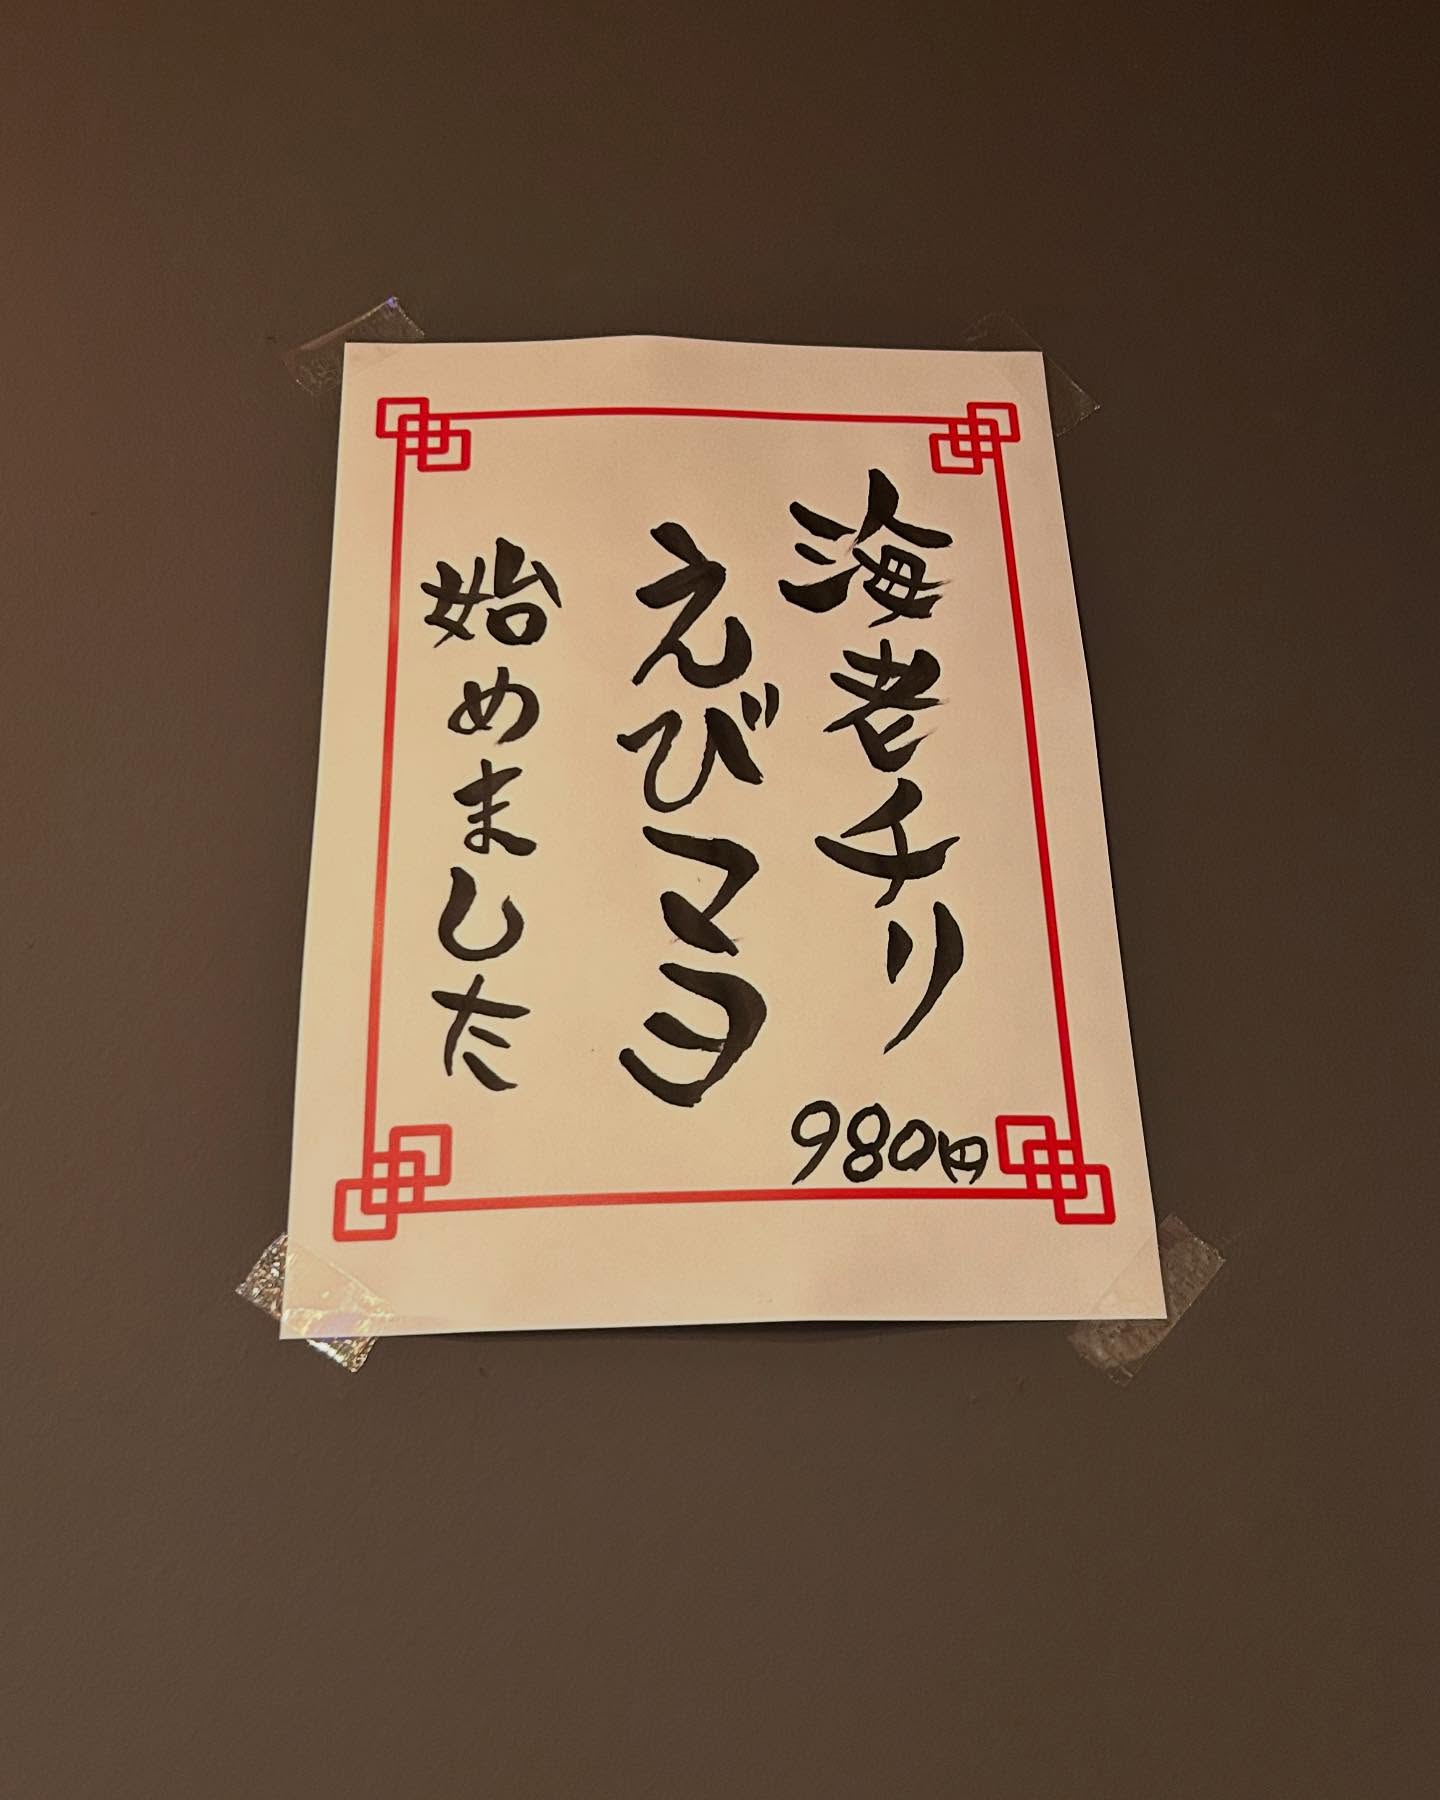 海老チリ
えびマヨ
980円
始めました